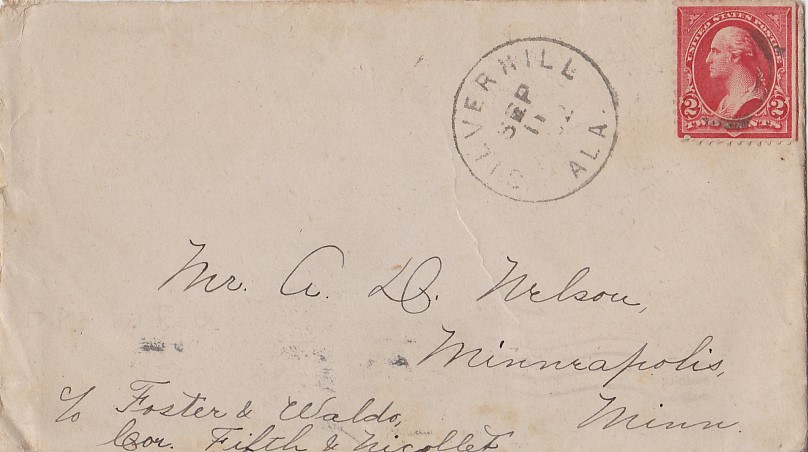 SILVERHILL
SEP
11
ALA.
UNITED STATES POSTAGE
2 2
TWO CENTS
Mr. A. D. Nelson,
Minneapolis,
Minn.
℅ Foster & Waldo,
Cor. Fifth & Nicollet